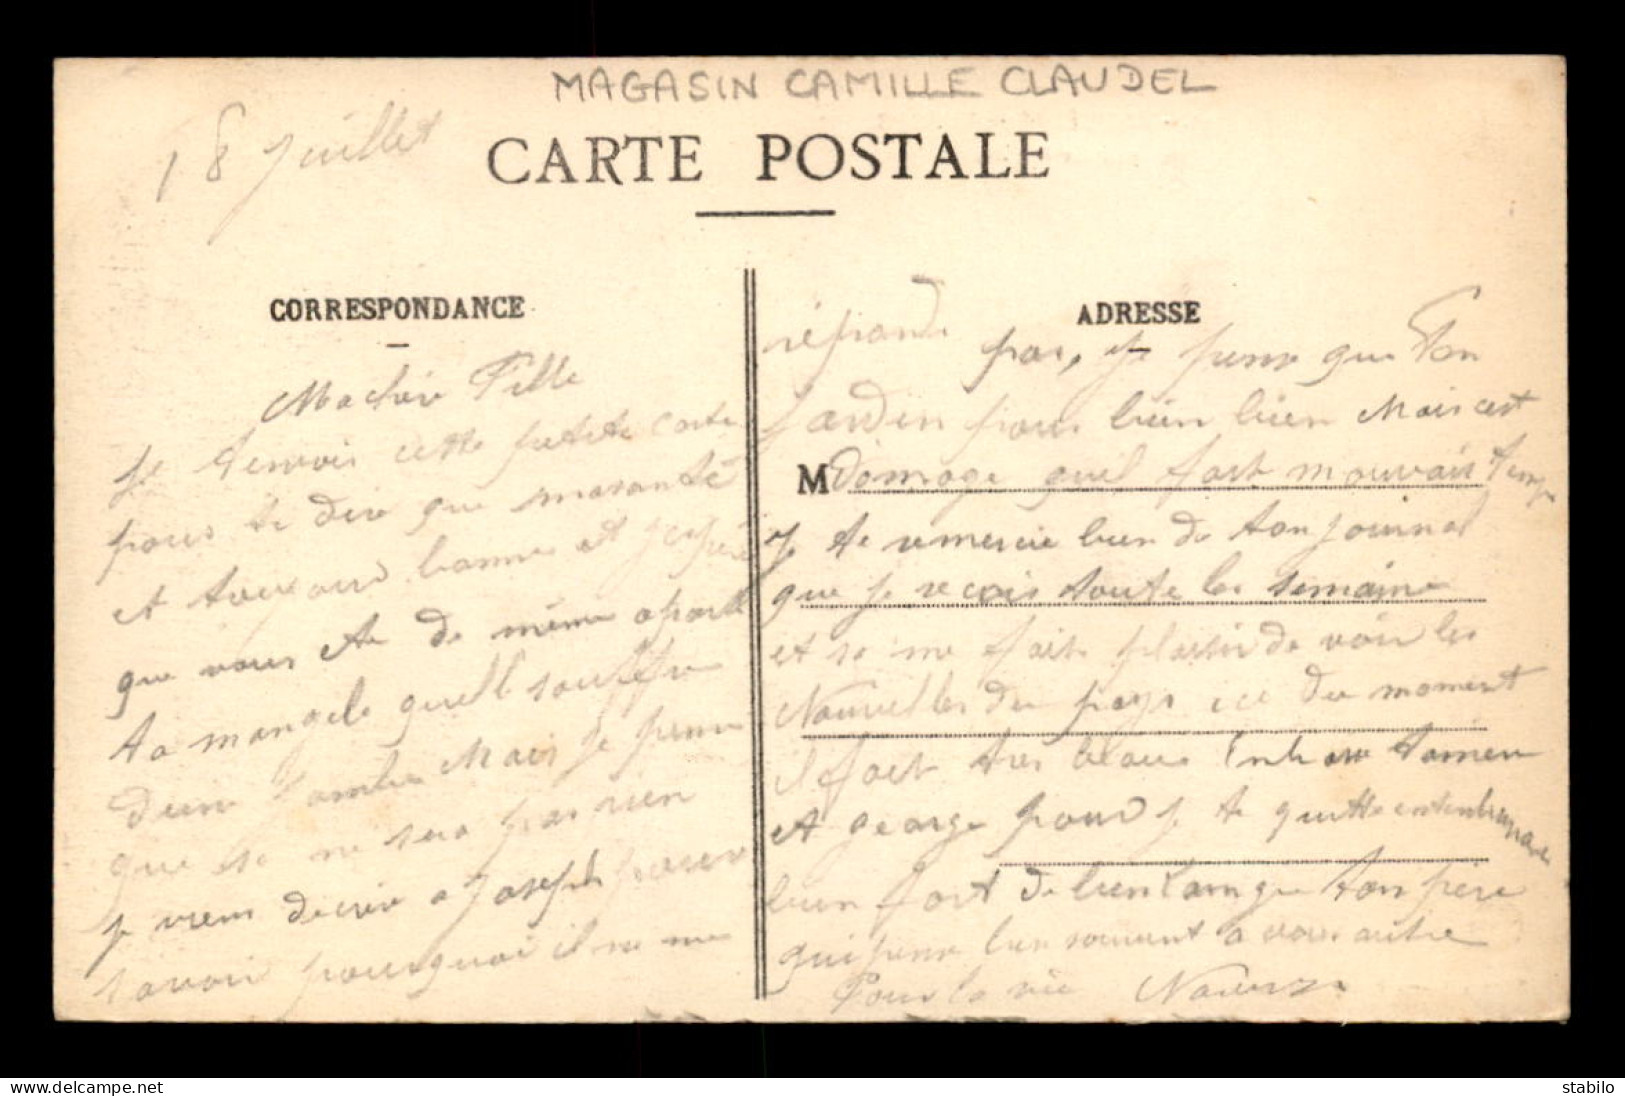 MAGASIN CAMILLE CLAUDEL
18 Juillet
CARTE POSTALE
CORRESPONDANCE
ADRESSE
Machère Fille
Je tenvois cette petite carte
pour te dire que masanté
et toujour bonne et jespère
que vous ete de même apart
ta mangela quelle souffre
dune jambe Mais je pense
que se ne sera pas rien
je viens decrire a Joseph pour
savoir pourquoi il ne me
réponds pas, Je pense que ton
jardin pousse bien bien Mais cest
M domage quil fait mouvais temps
Je te remercie bien de ton journal
que je recois toute les semaine
et sa me fait plaisir de voir les
Nouvelles du pays ice du moment
il fait tres beau
et george pour je te quitte entembrasant
bien fort de bien loin que ton père
qui pense bien souvent a vous autre
Pour la vie
www.delcampe.net
stabilo